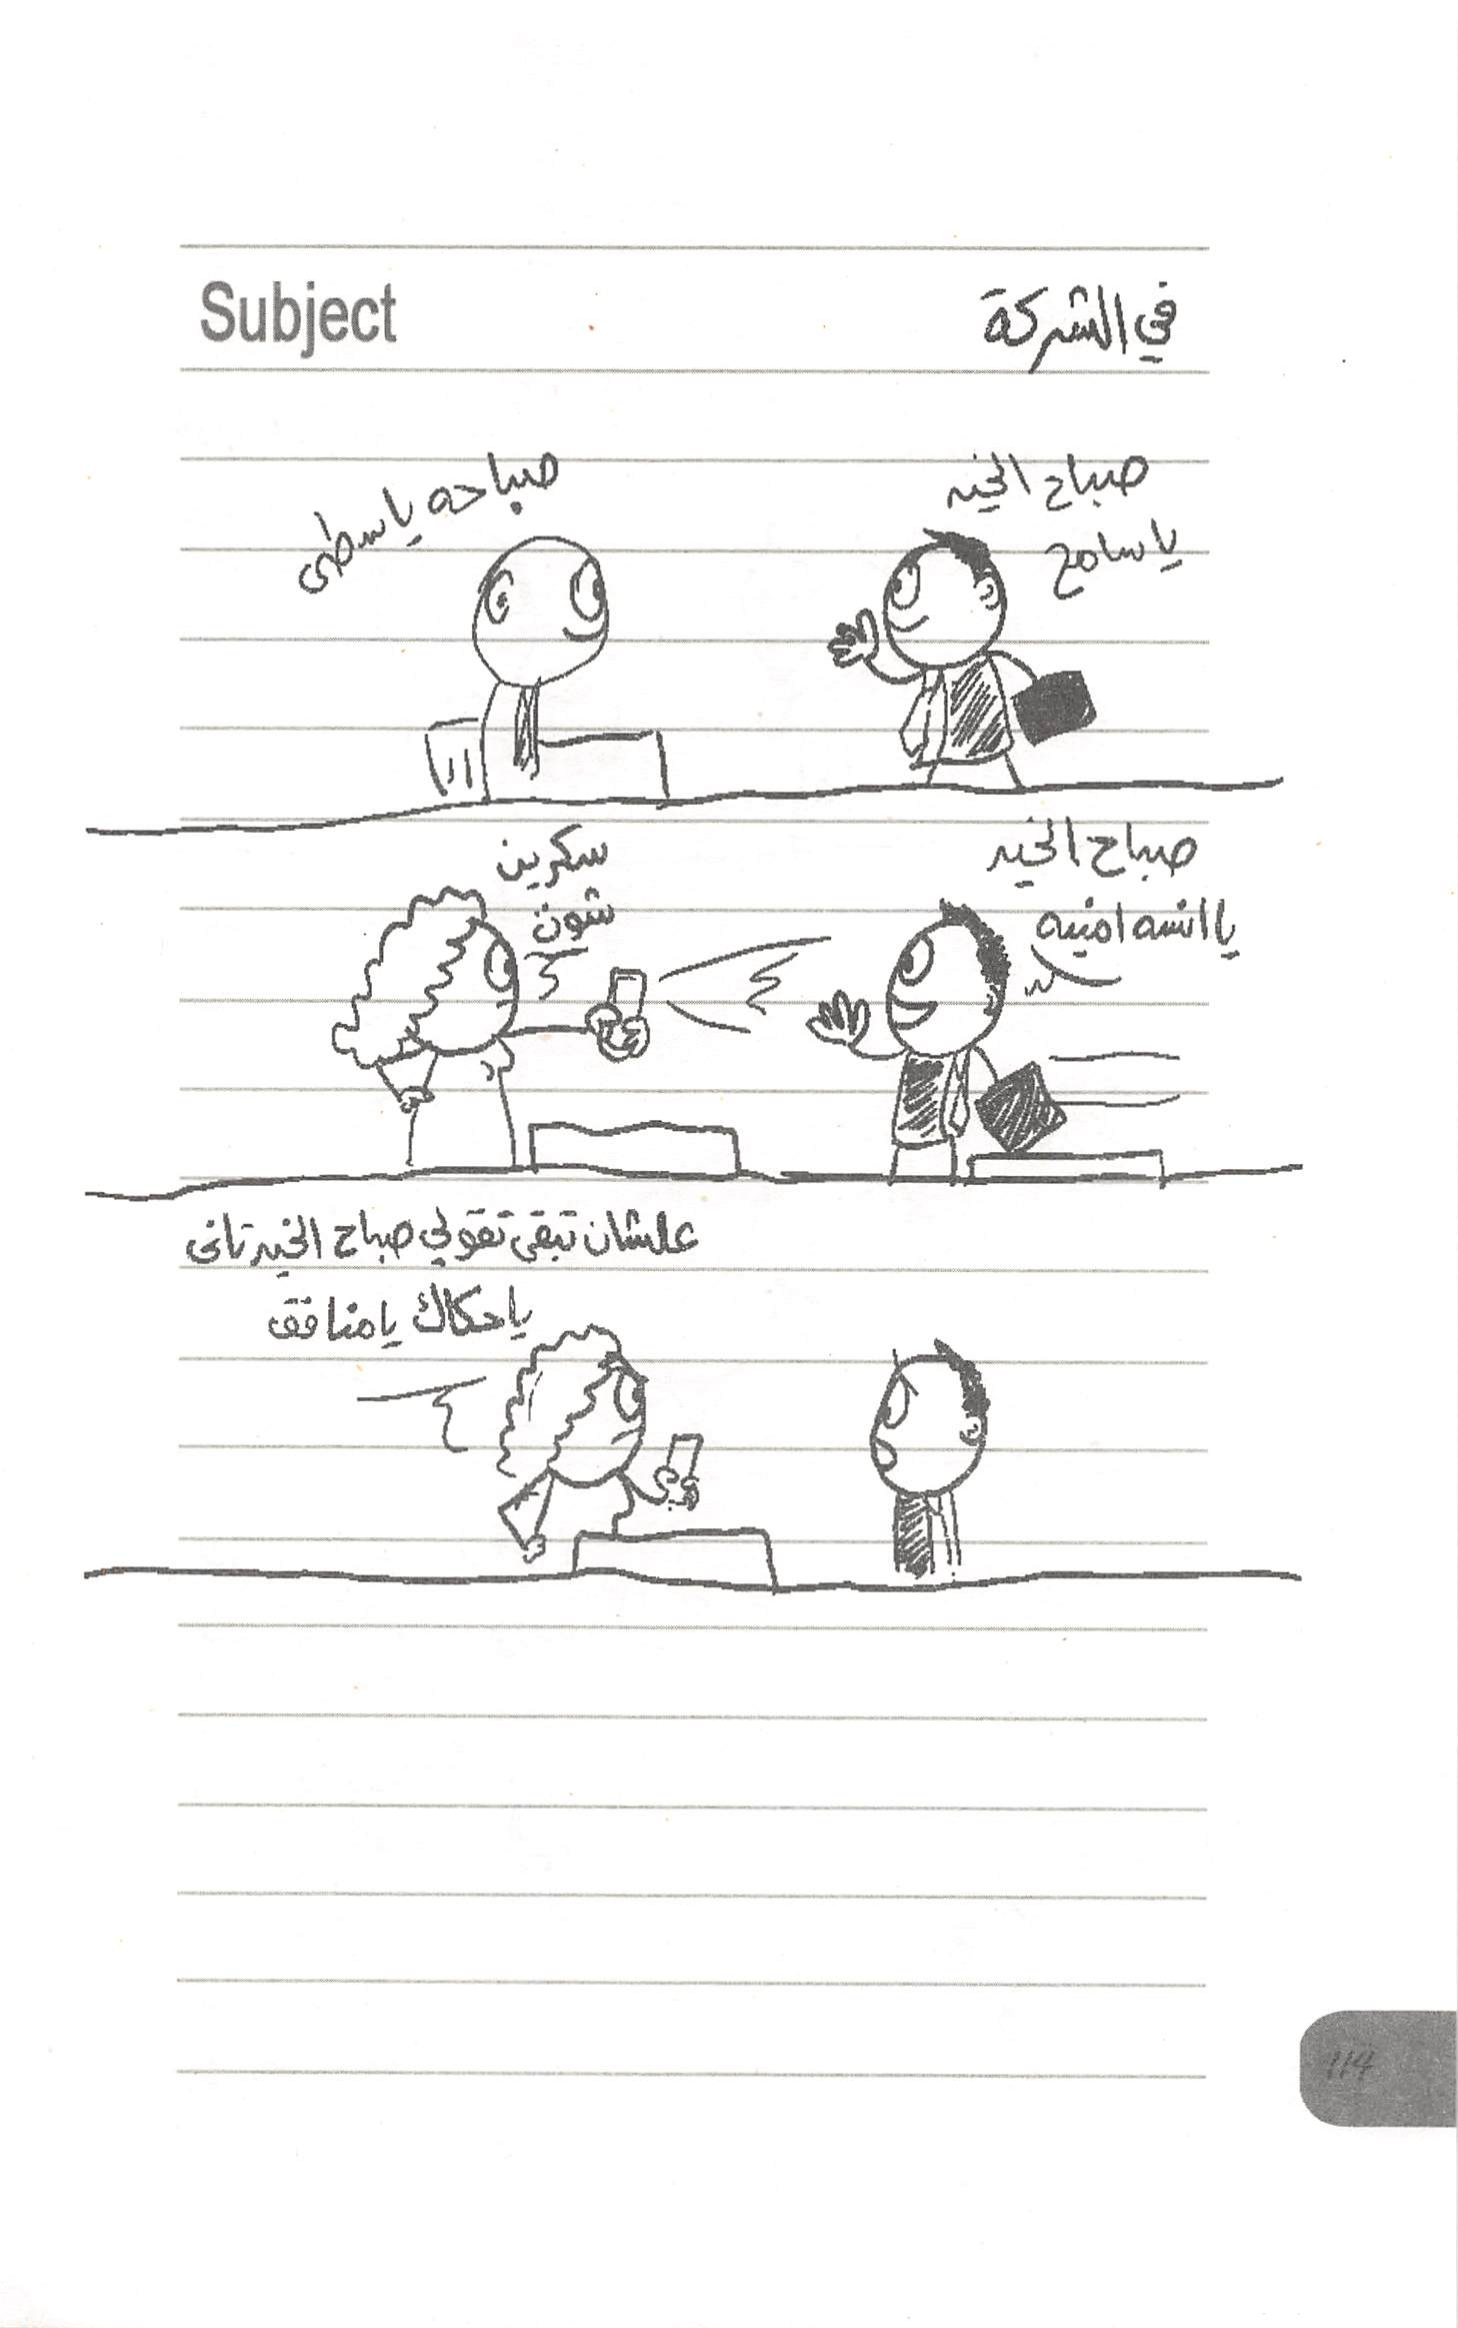 Subject
في الشركة
صباح الخير
يا سامح
صباحه يا سطى
صباح الخير
يا انسه امنيه
سكرين
شوت
علشان تبقى تقولي صباح الخير تاني
يا حكاك يا منافق
114